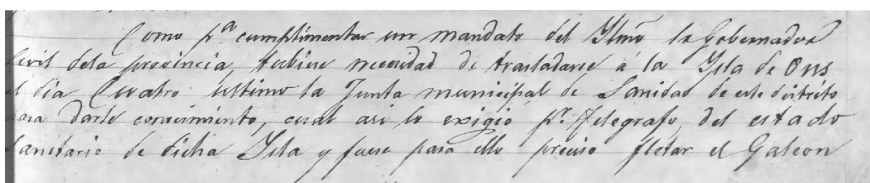 Como pª cumplimentar un mandato del Ylmo Sr Gobernador
Civil dela provincia, tubiese necesidad de trasladarse á la Ysla de Ons
el dia Cuatro último la Junta municipal de Sanidad de este distrito
para darle conocimiento, cual asi lo exigió pr. Telegrafo, del estado
Sanitario de dicha Ysla y fuese para ello preciso fletar el Galeon